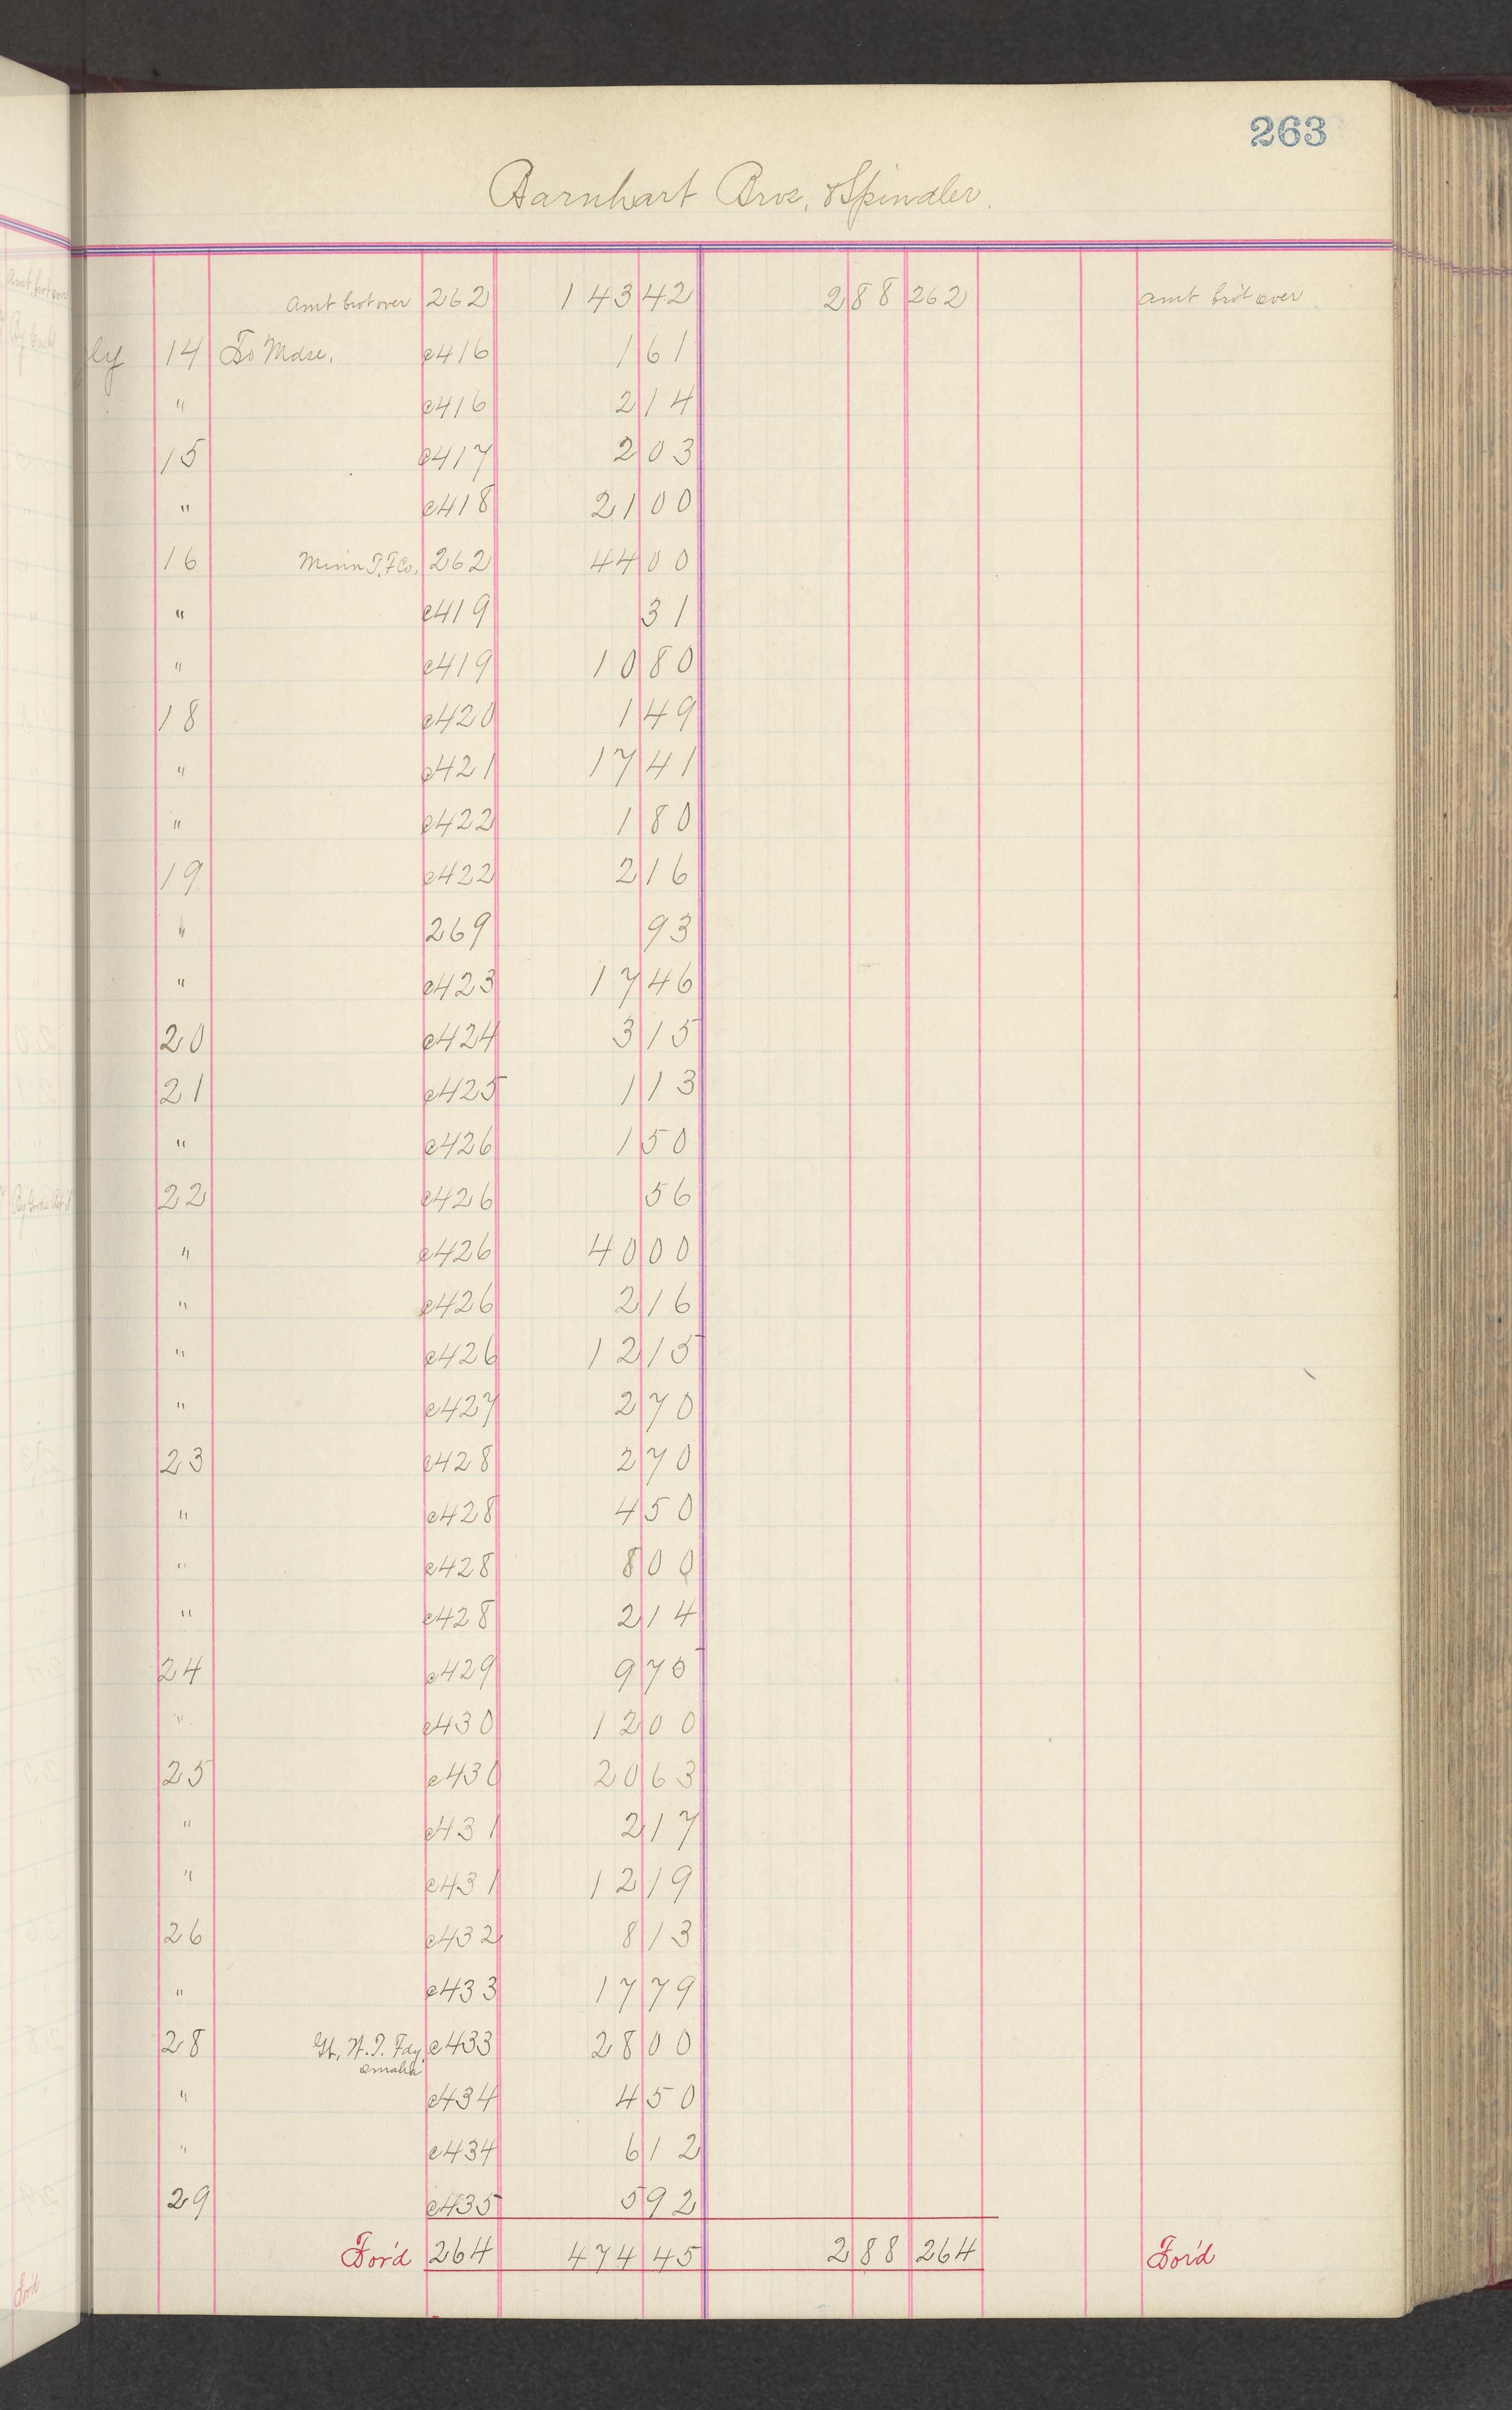 263
Barnhart Bros. & Spindler.
Amt brot over 262 143 42 2 88 262 amt bro't over
ly 14 To Mdse. c416 1 61
" c416 2 14
15 c417 2 03
" c418 21 00
16 Minn T. F Co. 262 44 00
" c419 31
" c419 10 80
18 c420 1 49
" c421 17 41
" c422 1 80
19 c422 2 16
" 269 93
" c423 17 46
20 c424 3 15
21 c425 1 13
" c426 1 50
22 c426 56
" c426 40 00
" c426 2 16
" c426 12 15
" c427 2 70
23 c428 2 70
" c428 4 50
" c428 8 00
" c428 2 14
24 c429 9 75
" c430 12 00
25 c430 20 63
" c431 2 17
" c431 12 19
26 c432 8 13
" c433 17 79
28 Gt. W. T. Fdy. c433 28 00
Omaha
" c434 4 50
" c434 6 12
29 c435 5 92
For'd 264 474 45 2 88 264 For'd